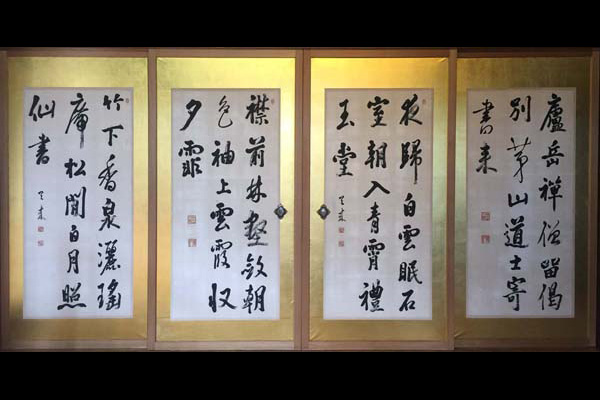 廬岳禪僧留偈
別茅山道士寄
書来
夜歸白雲眠石
室朝入青霄禮
玉堂
襟前林壑斂
色袖上雲霞収
夕霏
竹下香泉灑瑤
席松間白月照
仙書